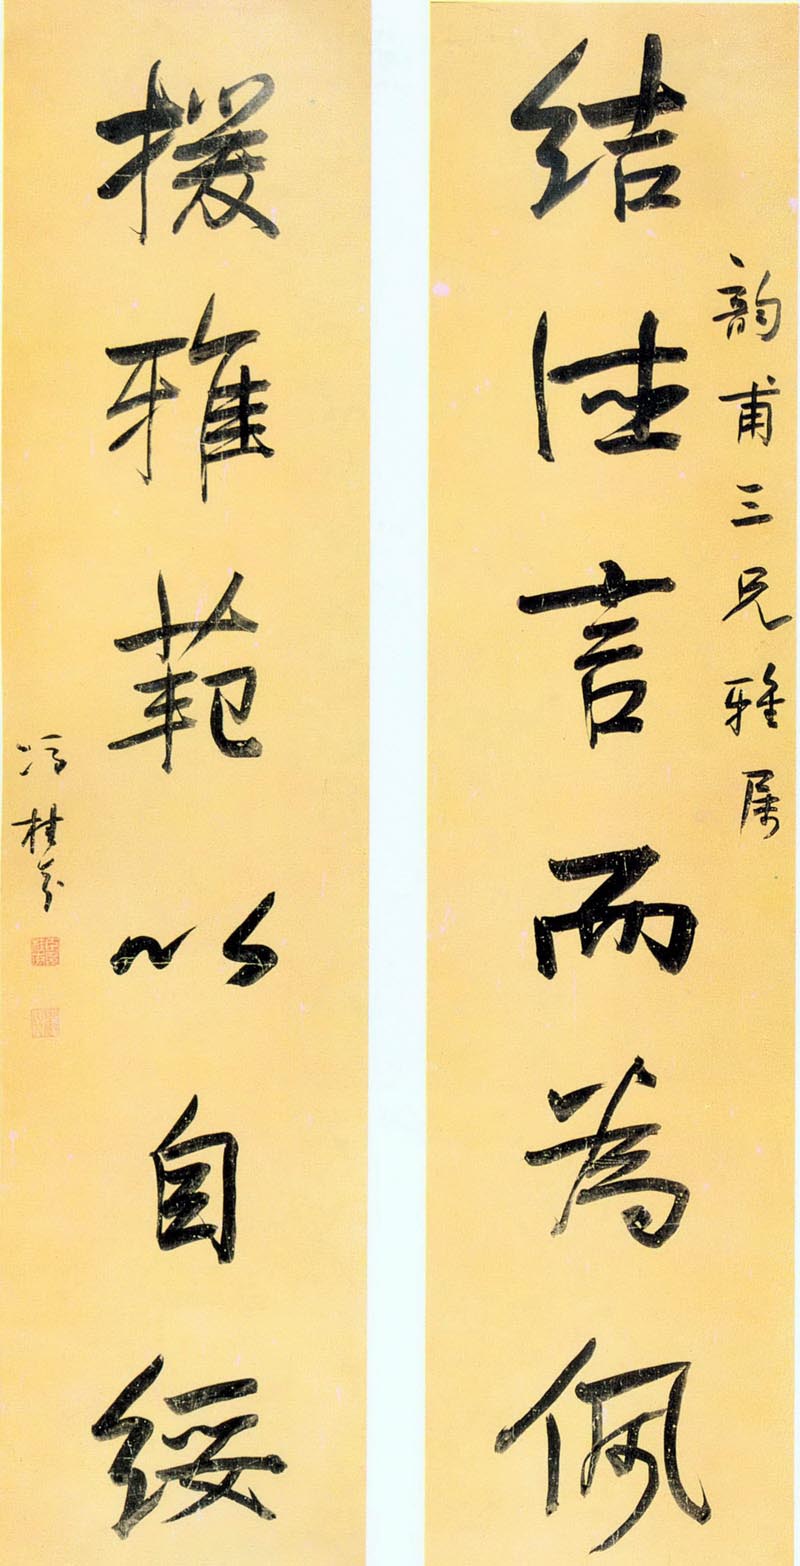 韵甫三兄雅属
結德言而為佩
援雅範以自綏
馮桂芬